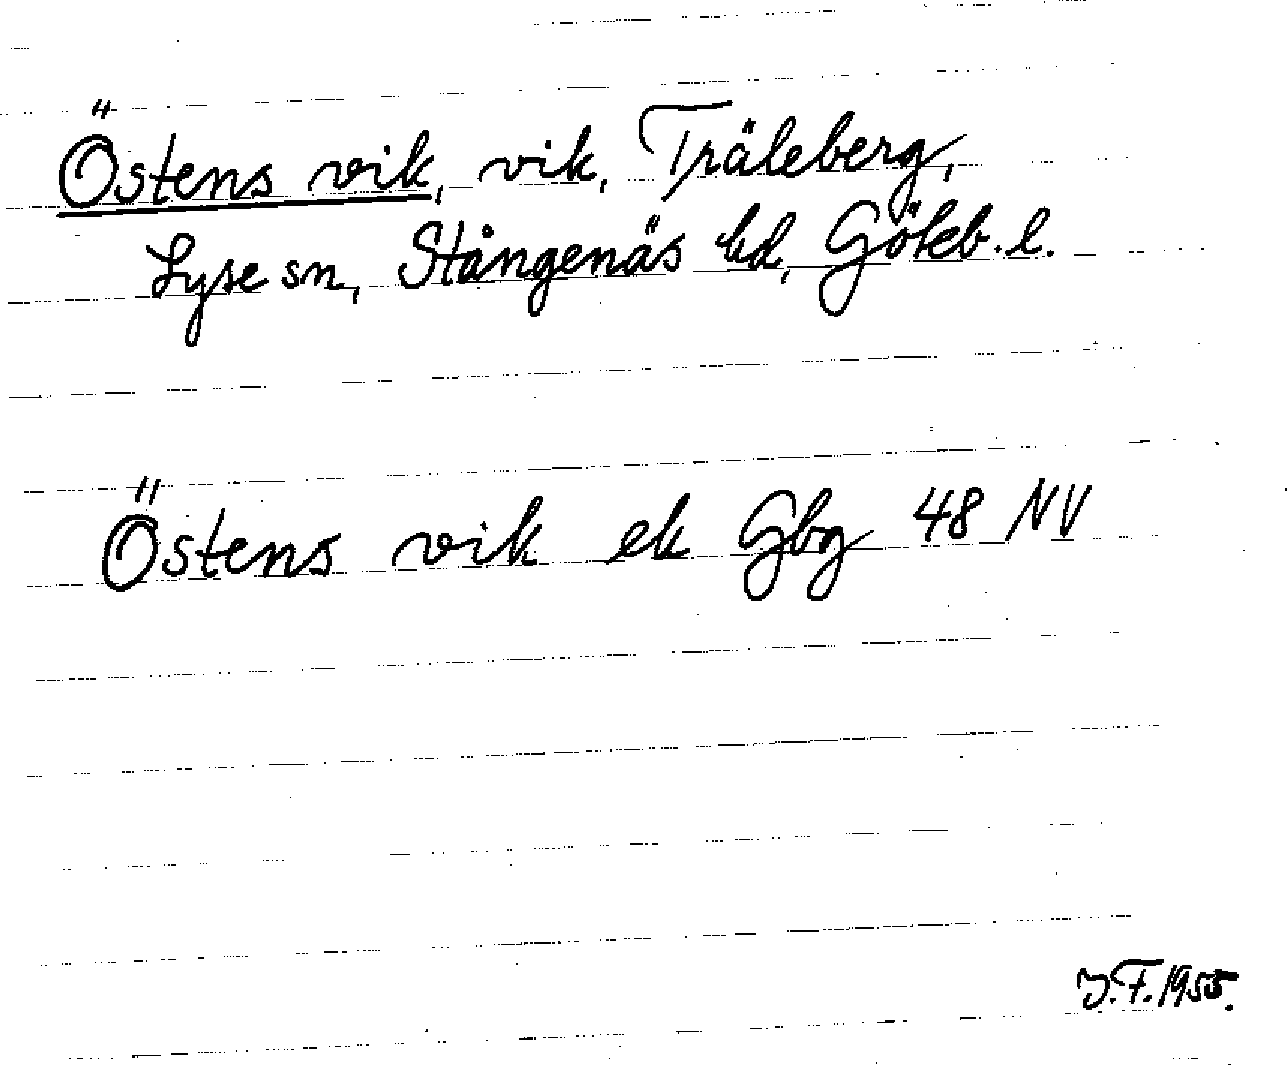 Östens vik, vik, Träleberg,
Lyse sn, Stångenäs hd, Göteb. l.
Östens vik ek Gbg 48 NV
J.F. 1955.